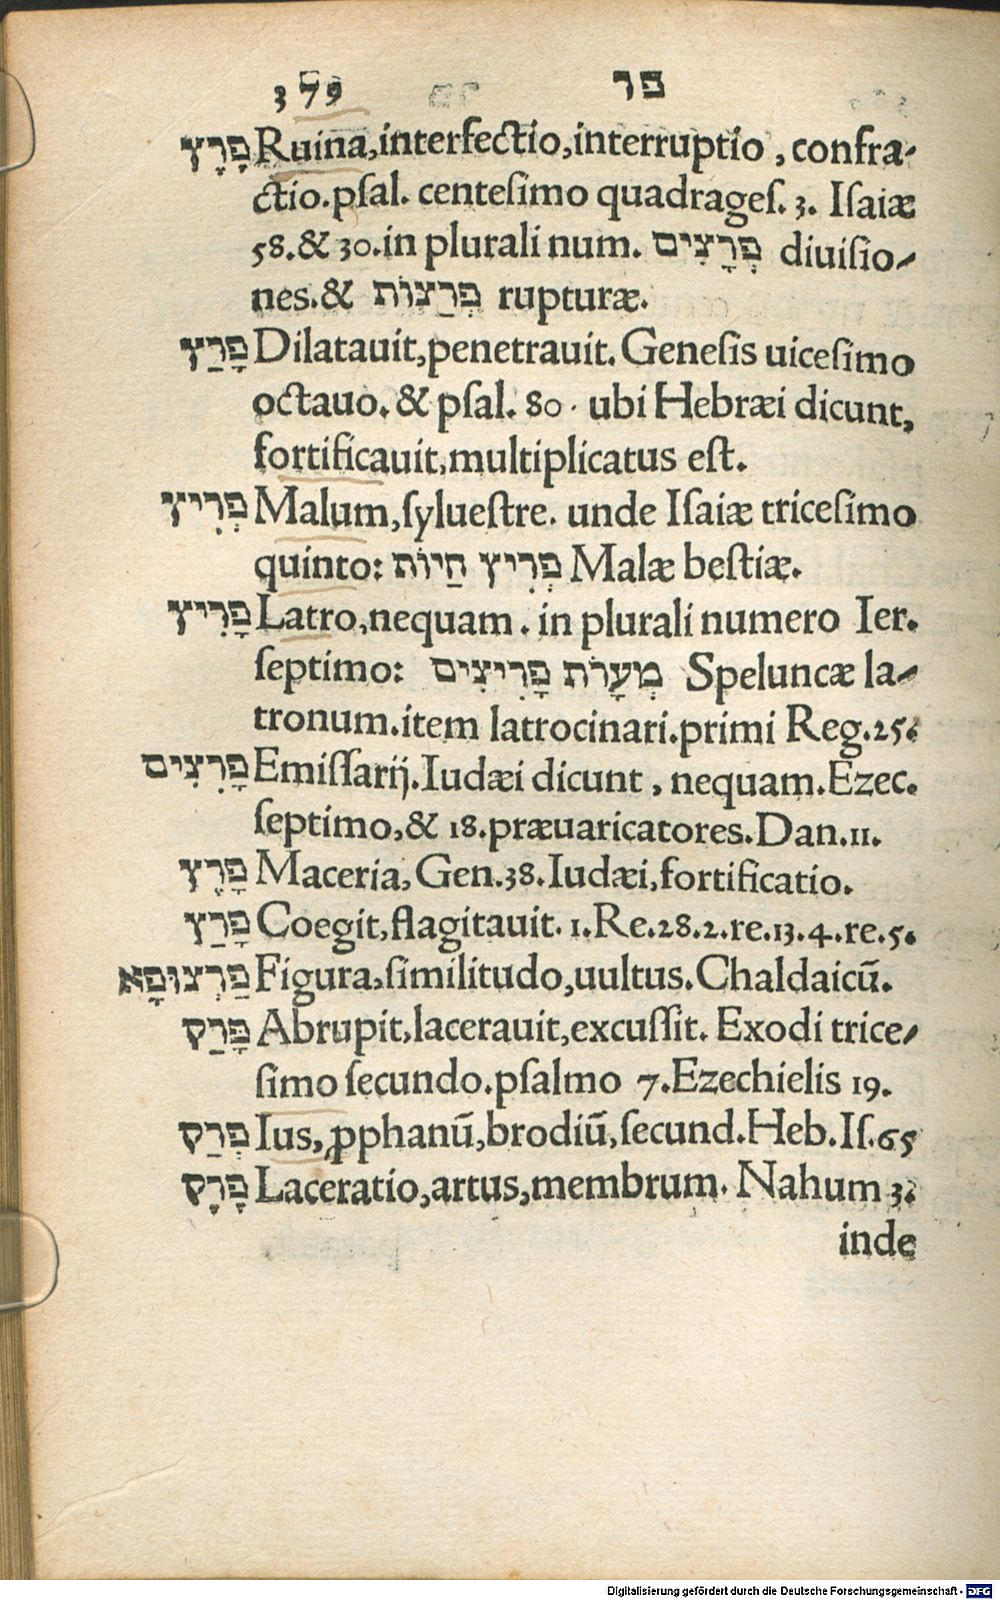 379 פר
פָרֶץ Ruina,interfectio,interruptio , confra-
ctio.psal. centesimo quadrages. 3. Isaiæ
58.& 30.in plurali num. פְרָצִים diuisio-
nes.& פְרַצוֹת rupturæ.
פָרַץ Dilatauit,penetrauit. Genesis uicesimo
octauo. & psal. 80. ubi Hebræi dicunt,
fortificauit,multiplicatus est.
פְרִיץ Malum,syluestre. unde Isaiæ tricesimo
quinto: פְרִיץ חַיוֹת Malæ bestiæ.
פָרִיץ Latro,nequam . in plurali numero Ier.
septimo: מְעָרֹת פָרִיצִים Speluncæ la-
tronum.item latrocinari.primi Reg.25.
פָרִצִים Emissarij.Iudæi dicunt , nequam.Ezec.
septimo,& 18.præuaricatores.Dan.11.
פָרֶץ Maceria, Gen.38.Iudæi,fortificatio.
פָרַץ Coegit,flagitauit. 1.Re.28.2.re.13.4.re.5.
פַרְצוּפָא Figura,similitudo,uultus. Chaldaicū.
פָרַק Abrupit,lacerauit,excussit. Exodi trice-
simo secundo.psalmo 7.Ezechielis 19.
פְרַק Ius, ꝓphanū,brodiū,secund.Heb.Is.65
פָרָק Laceratio,artus,membrum. Nahum 3.
inde
Digitalisierung gefördert durch die Deutsche Forschungsgemeinschaft - DFG